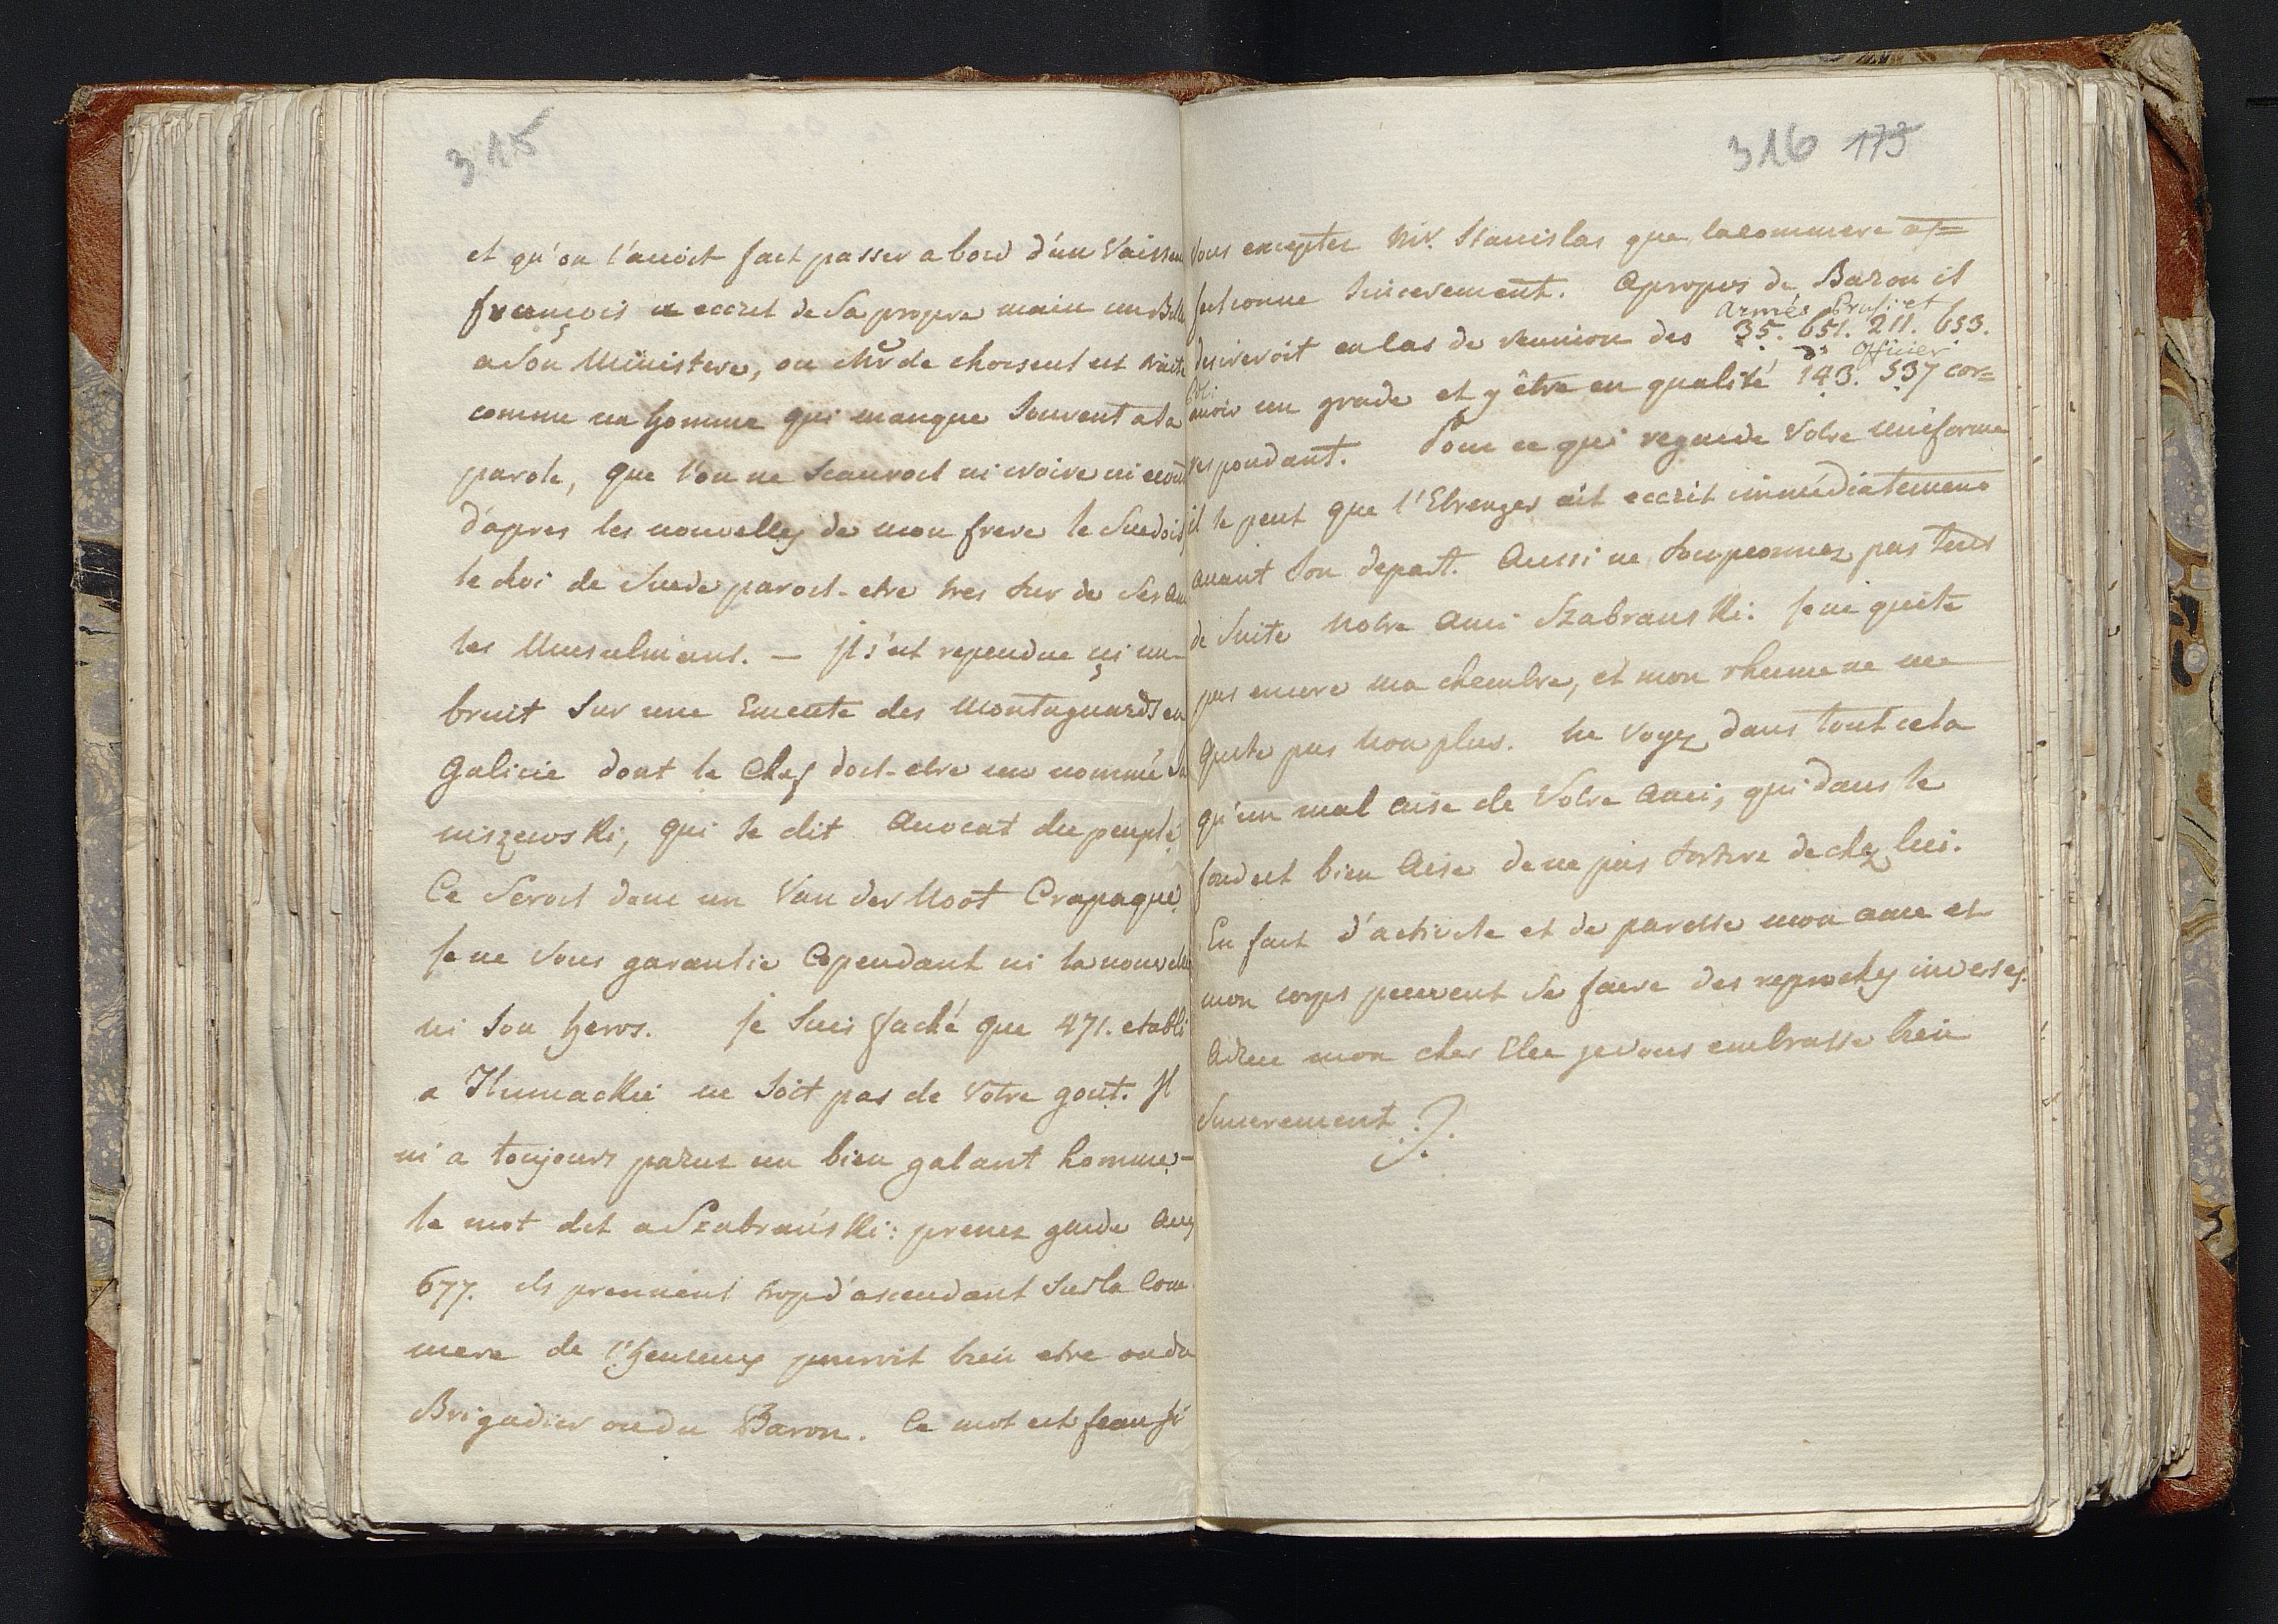 315
et qu'on l'auoit fait passer a bord d'un Vaissau
françois a eccrit de Sa propre main un Bille
a Son Ministere, ou Mr de choiseul est traite
comme un homme qui manque Souvent a Sa
parole, que l'on ne Scauroit ni croire ni ecout
d'apres les nouvelles de mon frere le Suedois
le Roi de Suede paroit-etre tres Sur de Ses Am
les Musulmans. — Il s'est rependue içi un
bruit Sur une Emeute des Montagnards en
Galicie dont le Chef doit-etre un nommé
niszewski, qui Se dit Auocat du peuple.
Ce Seroit donc un Van der Noot Crapaque
Je ne Vous garantie Cependant ni la nouvelle
ni Son heros. Je Suis faché que 471. etabli
a Tlumackie ne Soit pas de Votre gout. Il
m'a toujours parut un bien galant homme -
le mot dit a Szabrański: prenez garde aux
677. ils prennent trop d'ascendant Sur la Com
mere de l'heureux pouroit bien etre ou du
Brigadier ou du Baron. Ce mot est faux Si
316 173
Vous exceptez Mr. Stanislas que la commere af=
fectionne Sincerement. Apropos de Baron il
Armés Prus: et
desireroit en cas de reunion des 35. 651. 211. 653.
d'
Officier
avoir un grade et y être en qualité 143. 537 cor=
respondant. Pour ce qui regarde Votre uniforme
il Se peut que l'Etranger ait eccrit immédiatement
auant Son depart. Aussi ne Soupconnez pas tout
de Suite Notre Ami Szabranski. Je ne quite
pas encore ma chembre, et mon rhume ne me
quite pas Non plus. Ne Voyez dans tout cela
qu'un mal aise de Votre Ami, qui dans le
fond est bien Aise de ne pas Sortire de chez lui.
En fait d'activite et de paresse mon ame et
mon corps peuvent Se faire des reproches inverses.
Adieu mon cher Elie je vous embrasse bien
Sincerement